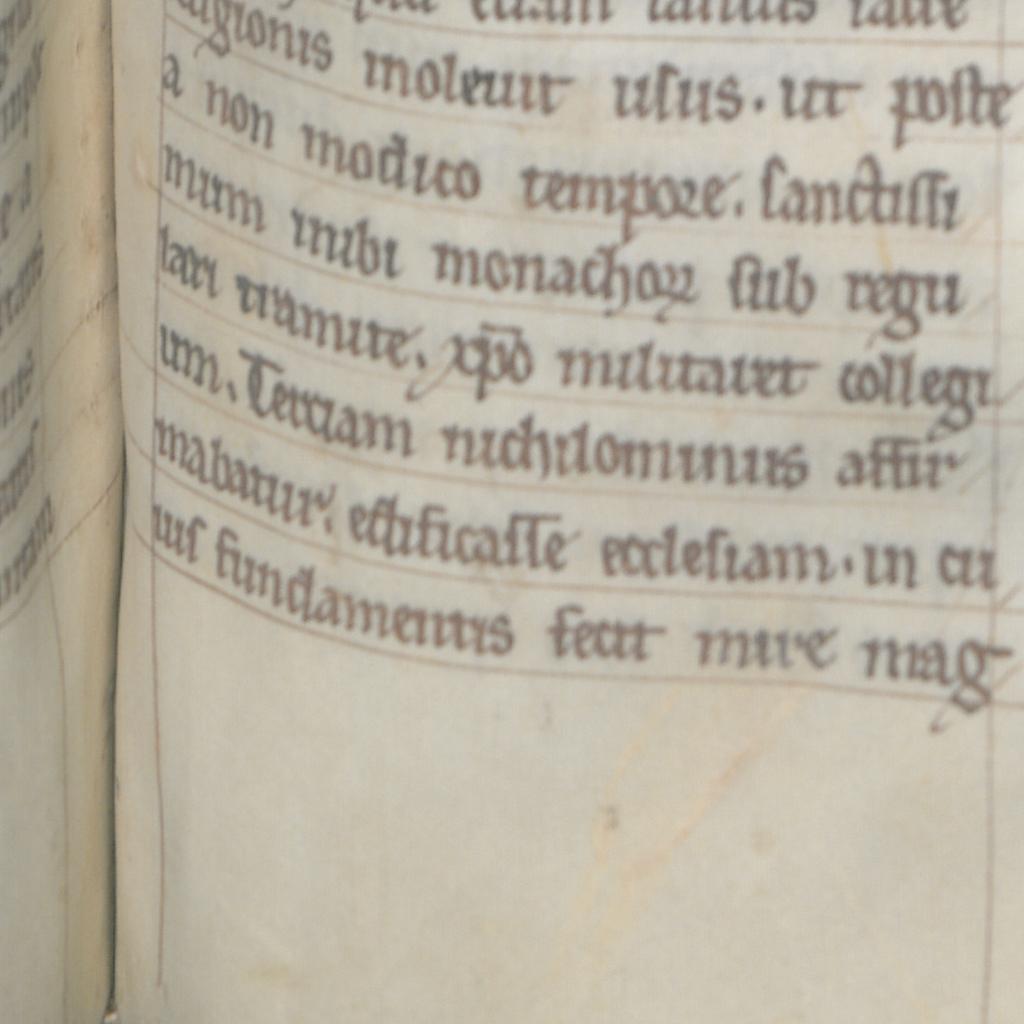 etiam
ligionis moleuit usus. ut poste
a non modico tempore. sanctissi
mum inibi monachoꝝ sub regu
lari tramite. xp̄o militaret collegi
um. Terciam nichilominus affir
mabatur. edificasse ecclesiam. in cu
ius fundamentis fecit mire mag